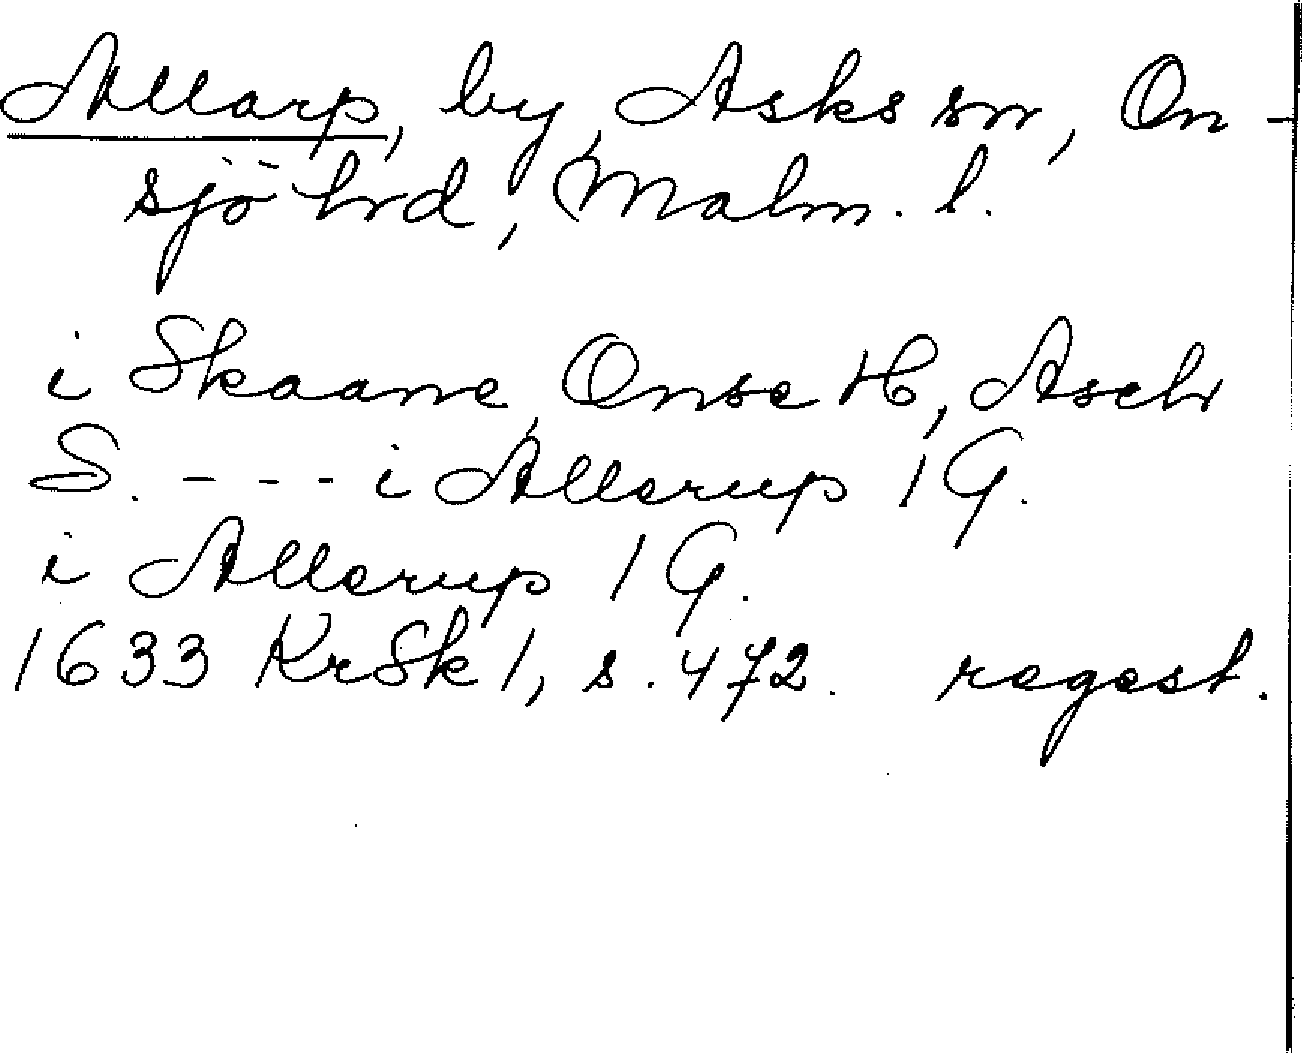 Allarp, by, Asks sn, On-
sjö hrd, Malm. l.
i Skaane, Onse H, Asch
S. - - - i Allerup 1 G.
i Allerup 1 G.
1633 KrSk 1, s. 472. regest.